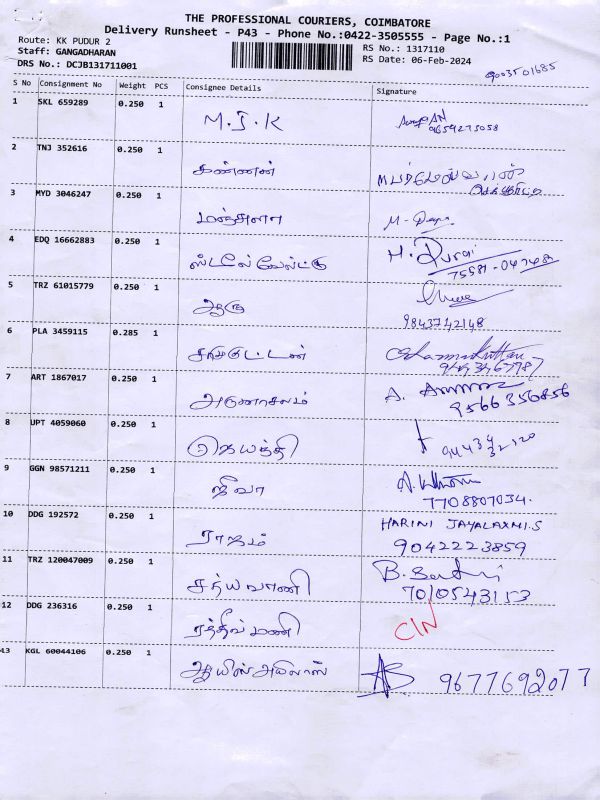 THE PROFESSIONAL COURIERS, COIMBATORE
Delivery Runsheet - P43 - Phone No.:0422-3505555 - Page No.:1
Route: KK PUDUR 2
RS No.: 1317110
Staff: GANGADHARAN
RS Date: 06-Feb-2024
DRS No.: DCJB131711001
9003501685
S No Consignment No Weight PCS Consignee Details Signature
1 SKL 659289 0.250 1 M.J.K
9659275058
2 TNJ 352616 0.250 1 கண்ணன்
3 MYD 3046247 0.250 1 மஞ்சுளா
4 EDQ 16662883 0.250 1 H. Durai
75581-04748
5 TRZ 61015779 0.250 1 ஆரு
9843742148
6 PLA 3459115 0.285 1
7 ART 1867017 0.250 1 அருணாசலம் A.
9566350856
8 UPT 4059060 0.250 1 ஜெயந்தி
9 GGN 98571211 0.250 1 ஜீவா
7708807034.
10 DDG 192572 0.250 1 ராஜம் HARINI JAYALAXMI.S
9042223859
11 TRZ 120047009 0.250 1 சத்யவாணி B.
7010543153
12 DDG 236316 0.250 1 ரத்தினமணி CIN
13 KGL 60044106 0.250 1 9677692077